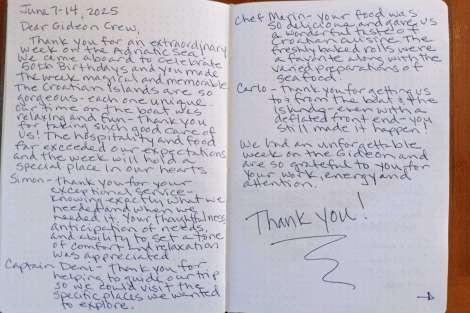 June 7-14, 2025
Dear Gideon Crew,
Thank you for an extraordinary
week on the Adriatic Sea!
We came aboard to celebrate
60th Birthdays and you made
the week magical and memorable.
The Croatian Islands are so
gorgeous - each one unique.
Our time on the boat was
relaxing and fun - Thank you
for taking such good care of
us! The hospitality and food
far exceeded our expectations
and the week will hold a
special place in our hearts
Simon - Thank you for your
exceptional service -
knowing exactly what we
needed and when we
needed it. Your thoughtfulness,
anticipation of needs,
and ability to set a tone
of comfort and relaxation
was appreciated
Captain Deni - Thank you for
helping to guide our trip
so we could visit the
specific places we wanted
to explore.
Chef Marin - your food was
so delicious and gave us
a wonderful taste of
Croatian cuisine. The
freshly baked rolls were
a favorite along with the
varied preparations of
seafood.
Carlo - Thank you for getting us
to & from the boat & the
islands - even with a
deflated front end - you
still made it happen!
We had an unforgettable
week on the Gideon and
are so grateful to you for
your work, energy and
attention.
Thank you!